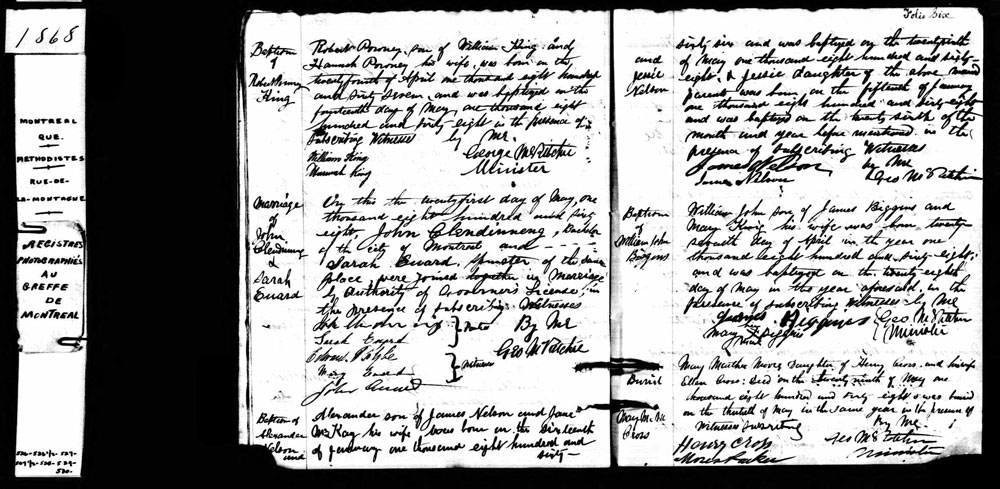 1868
MONTREAL
QUE.
METHODISTES
RUE-DE-
LA-MONTAGNE
REGISTRES
PHOTOGRAPHIÉS
AU
GREFFE
DE
MONTREAL
Baptism
of
Robert Powney
King
Robert Powney, son of William King and
Hannah Powney his wife, was born on the
twentyfourth of April one thousand eight hundred
and sixty seven, and was baptized on the
fourteenth day of May, one thousand eight
hundred and sixty eight in the presence of
subscribing Witnesses by Me.
William King
Hannah King
George McRitchie
Minister
Marriage
of
John
Clendinneng
&
Sarah
Euard
On this the twentyfirst day of May, one
thousand eight hundred and sixty
eight, John Clendinneng, Bachelor
of the city of Montreal and
Sarah Euard, Spinster of the same
place were joined together in Marriage
by Authority of Governor's License, in
the presence of subscribing Witnesses
By Me
Sarah Euard
Geo McRitchie
Mary Euard
Witnesses
John Euard
Baptism of
Alexander
Nelson
and
Alexander son of James Nelson and Jane
McKay his wife was born on the sixteenth
of January one thousand eight hundred and
sixty-
Folio Six
and
Jessie
Nelson
sixty six and was baptized on the twentysixth
of May one thousand eight hundred and sixty-
eight. & Jessie daughter of the above named
parents was born on the fifteenth of January
one thousand eight hundred and sixty-eight
and was baptized on the twenty sixth of the
month and year before mentioned in the
presence of subscribing Witnesses
James Nelson by Me
James Nelson Geo McRitchie
Baptism
of
William John
Biggins
William John son of James Biggins and
Mary King his wife was born twenty
seventh day of April in the year one
thousand eight hundred and sixty-eight;
and was baptized on the twenty eight
day of May in the year aforesaid, in the
presence of subscribing witnesses by Me
James Higgins
Geo McRitchie
Minister
Mary Higgins
Burial
Cross
May Martha Daughter of Henry Cross and his wife
Ellen Cross, died on the twenty ninth of May one
thousand eight hundred and sixty eight & was buried
on the thirtieth of May in the same year in the presence of
Witnesses subscribing By Me
Henry Cross
Geo McRitchie
Minister
Moses Parker